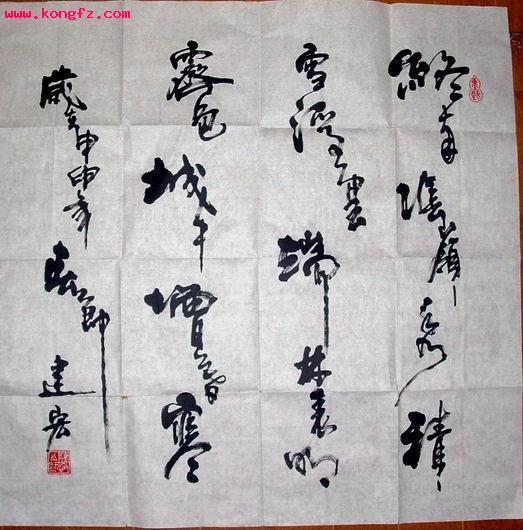 www.kongfz.com
終南陰嶺秀積
雪浮雲端林表明
霽色城中增暮寒
歲在甲申年春節 建宏